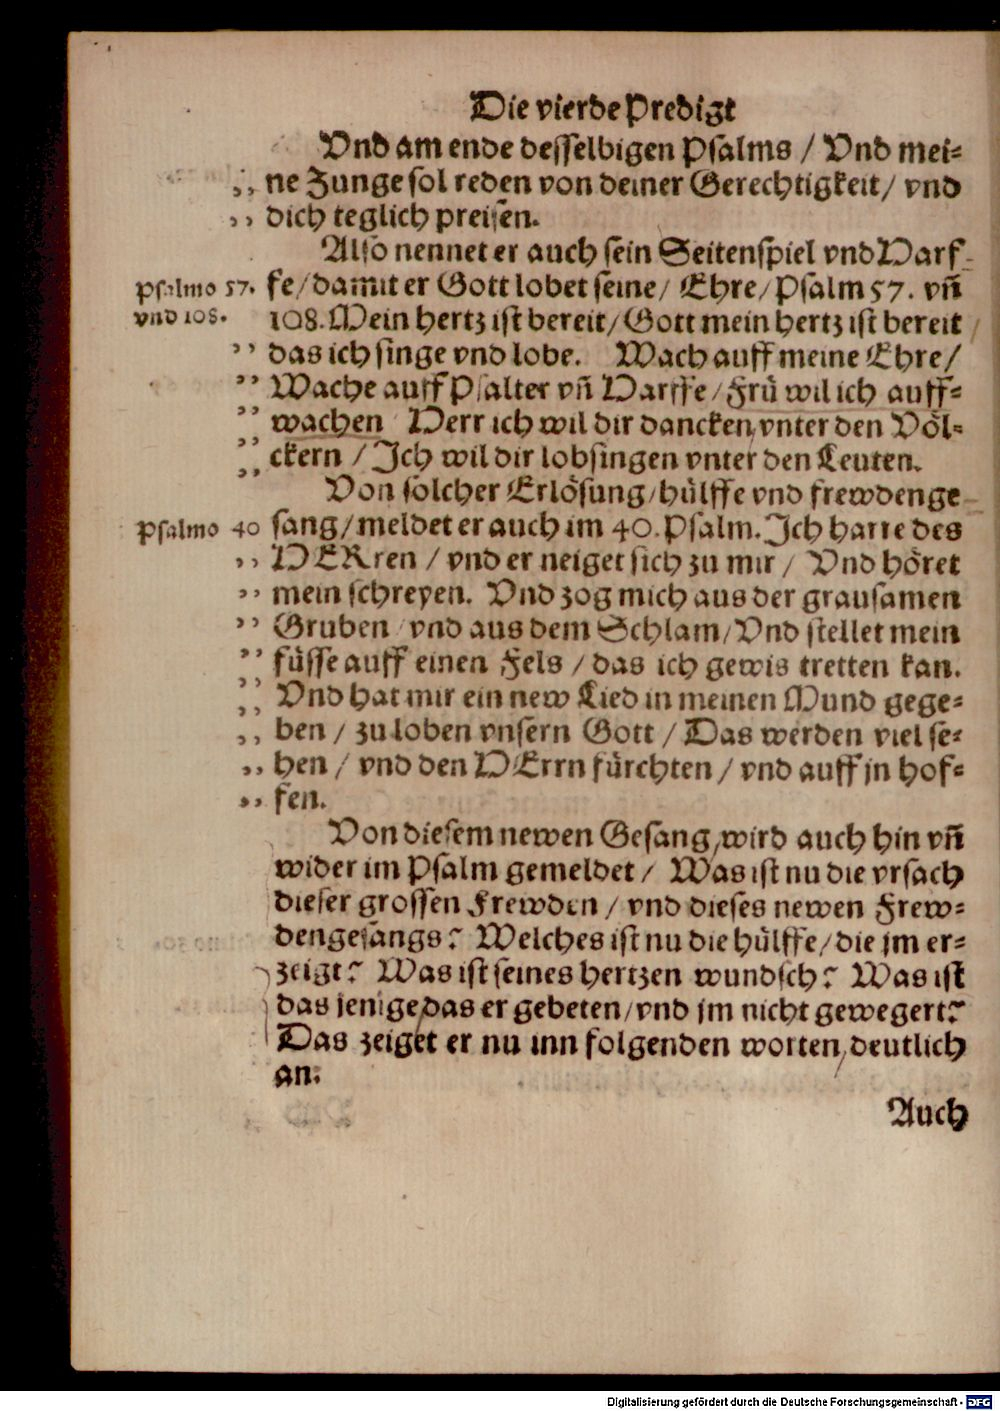 Die vierde Predigt
Vnd am ende desselbigen Psalms / Vnd mei⸗
,, ne Zunge sol reden von deiner Gerechtigkeit / vnd
,, dich teglich preisen.
Also nennet er auch sein Seitenspiel vnd Harf⸗
Psalmo 57. fe / damit er Gott lobet seine / Ehre / Psalm 57. vñ
vnd 108. 108. Mein hertz ist bereit / Gott mein hertz ist bereit /
,, das ich singe vnd lobe. Wach auff meine Ehre /
,, Wache auff Psalter vñ Harffe / Frü wil ich auff⸗
,, wachen / Herr ich wil dir dancken / vnter den Völ⸗
,, ckern / Ich wil dir lobsingen vnter den Leuten.
Von solcher Erlösung / hülffe vnd frewdenge⸗
Psalmo 40 sang / meldet er auch im 40. Psalm. Ich harre des
,, HERren / vnd er neiget sich zu mir / Vnd höret
,, mein schreyen. Vnd zog mich aus der grausamen
,, Gruben / vnd aus dem Schlam / Vnd stellet mein
,, füsse auff einen Fels / das ich gewis tretten kan.
,, Vnd hat mir ein new Lied in meinen Mund gege⸗
,, ben / zu loben vnsern Gott / Das werden viel se⸗
,, hen / vnd den HErrn fürchten / vnd auff jn hof⸗
,, fen.
Von diesem newen Gesang / wird auch hin vñ
wider im Psalm gemeldet / Was ist nu die vrsach
dieser grossen Frewden / vnd dieses newen Frew⸗
dengesangs? Welches ist nu die hülffe / die jm er⸗
zeigt? Was ist seines hertzen wundsch? Was ist
das jenige / das er gebeten / vnd jm nicht gewegert?
Das zeiget er nu inn folgenden worten / deutlich
an.
Auch
Digitalisierung gefördert durch die Deutsche Forschungsgemeinschaft - DFG